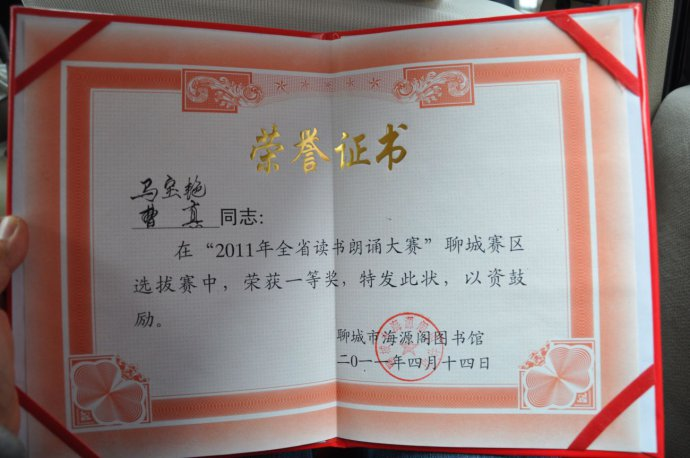 荣誉证书
马宝艳
曹真 同志:
在“2011年全省读书朗诵大赛”聊城赛区
选拔赛中,荣获一等奖,特发此状,以资鼓
励。
聊城市海源阁图书馆
二〇一一年四月十四日